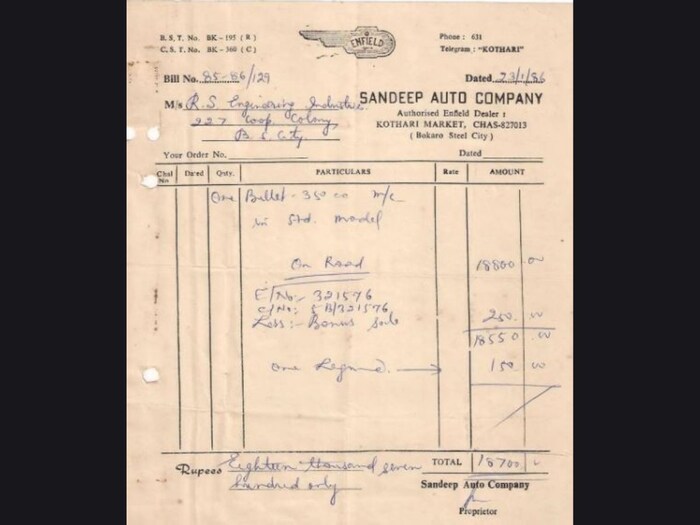 B. S. T. No. BK - 195 ( R )
C. S. T. No. BK - 360 ( C )
ENFIELD
Phone : 631
Telegram : "KOTHARI"
Bill No. 85-86/129
Dated 23/1/86
M/s R.S. Engineering Industries
227 Coop. Colony
B. S. City
SANDEEP AUTO COMPANY
Authorised Enfield Dealer :
KOTHARI MARKET, CHAS-827013
( Bokaro Steel City )
Your Order No.
Dated
Chal No Dated Qnty. PARTICULARS Rate AMOUNT
One Bullet - 350 cc m/c
in Std. model
On Road 18800 00
E/No:- 321576
C/No:- 5B/321576
Less:- Bonus 250 00
18550 00
One Legguard. → 150 00
Rupees Eighteen thousand seven
hundred only
TOTAL 18700
Sandeep Auto Company
Proprietor